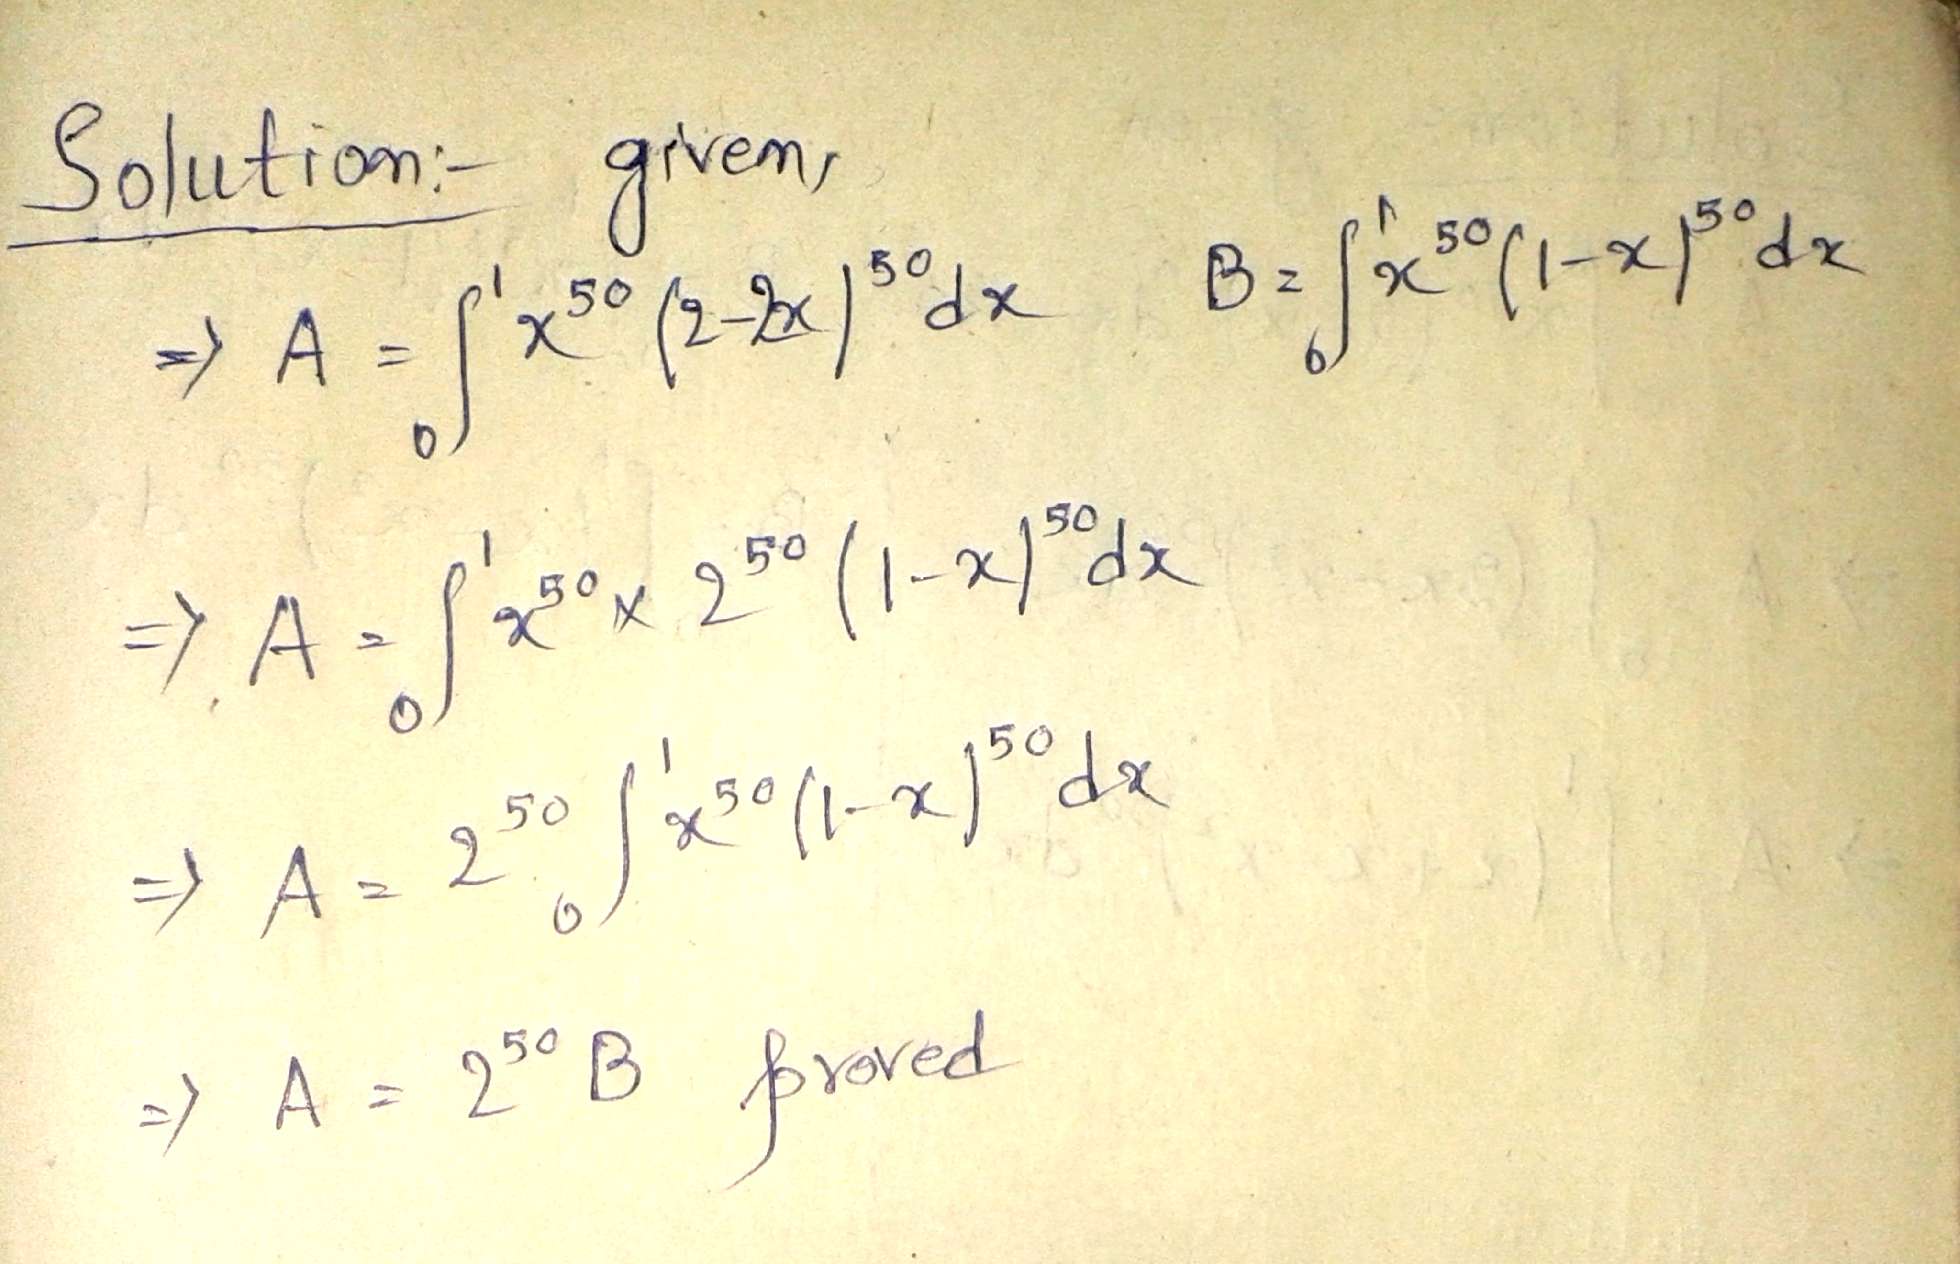 Solution:- given,
⇒ A = ₀∫¹ x⁵⁰ (2-2x)⁵⁰ dx B = ₀∫¹ x⁵⁰ (1-x)⁵⁰ dx
⇒ A = ₀∫¹ x⁵⁰ × 2⁵⁰ (1-x)⁵⁰ dx
⇒ A = 2⁵⁰ ₀∫¹ x⁵⁰ (1-x)⁵⁰ dx
⇒ A = 2⁵⁰ B proved